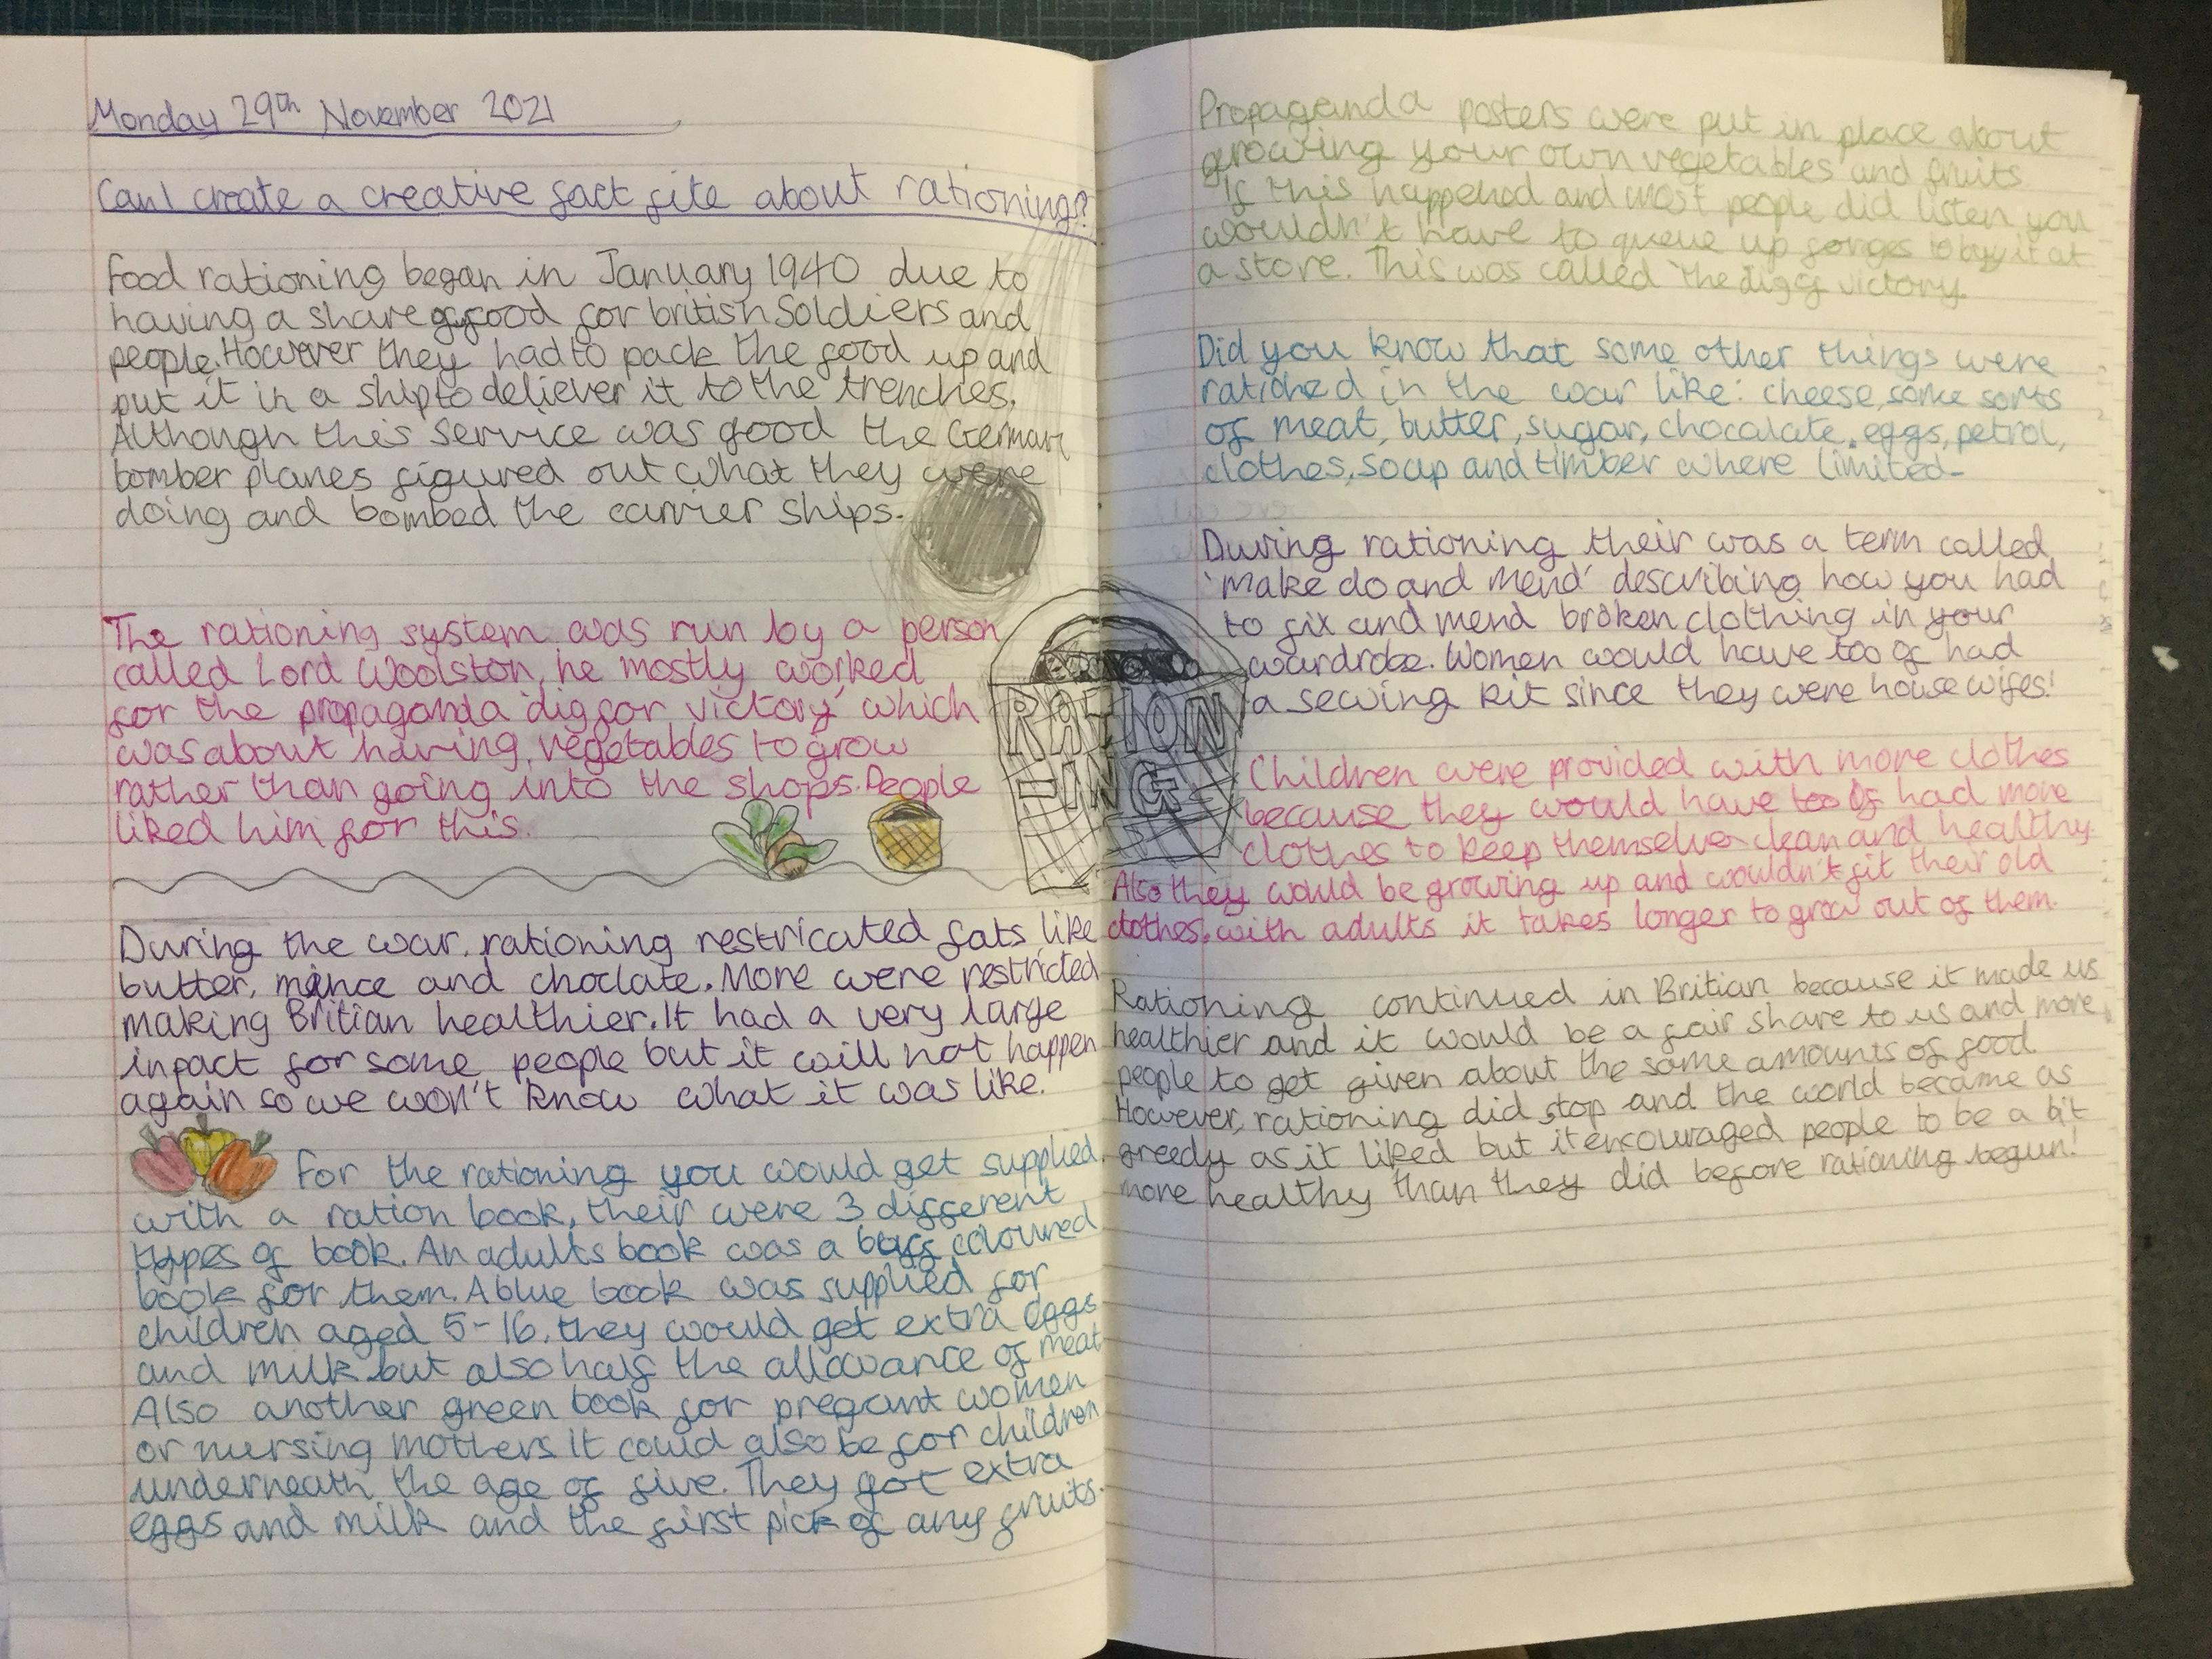 Monday 29th November 2021
Can I create a creative fact file about rationing?
Food rationing began in January 1940 due to
having a share of food for british Soldiers and
people. However they had to pack the food up and
put it in a ship to deliever it to the trenches.
Although this service was good the German
bomber planes figured out what they were
doing and bombed the carrier ships.
The rationing system was run by a person
called Lord Woolston, he mostly worked
for the propaganda 'dig for victory' which
was about having vegetables to grow
rather than going into the shops. People
liked him for this.
During the war, rationing restricated fats like
butter, mince and choclate. More were restricted
making Britian healthier. It had a very large
inpact for some people but it will not happen
again so we won't know what it was like.
For the rationing you would get supplied
with a ration book, their were 3 different
types of book. An adults book was a coloured
book for them. A blue book was supplied for
children aged 5-16, they would get extra eggs
and milk but also half the allowance of meat
Also another green book for pregant women
or nursing mothers it could also be for children
underneath the age of five. They got extra
eggs and milk and the first pick of any fruits.
RATION
-ING
Propaganda posters were put in place about
growing your own vegetables and fruits
If this happened and most people did listen you
wouldn't have to queue up for to buy it at
a store. This was called 'the dig victory.
Did you know that some other things were
rationed in the war like: cheese, some sorts
of meat, butter, sugar, chocalate, eggs, petrol,
clothes, soap and timber where limited-
During rationing their was a term called
'Make do and Mend' describing how you had
to fix and mend broken clothing in your
wardrobe. Women would have too of had
a sewing kit since they were house wifes!
Children were provided with more clothes
because they would have too of had more
clothes to keep themselves clean and healthy
Also they would be growing up and wouldn't fit their old
clothes, with adults it takes longer to grow out of them.
Rationing continued in Britian because it made us
healthier and it would be a fair share to us and more
people to get given about the same amounts of food
However, rationing did stop and the world became as
greedy as it liked but it encouraged people to be a bit
more healthy than they did before rationing begun!